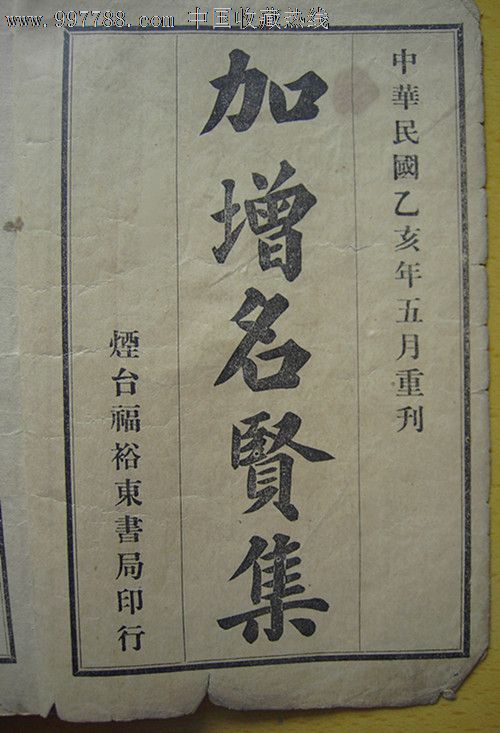 www.997788.com 中国收藏热线
中華民國乙亥年五月重刊
加增名賢集
煙台福裕東書局印行